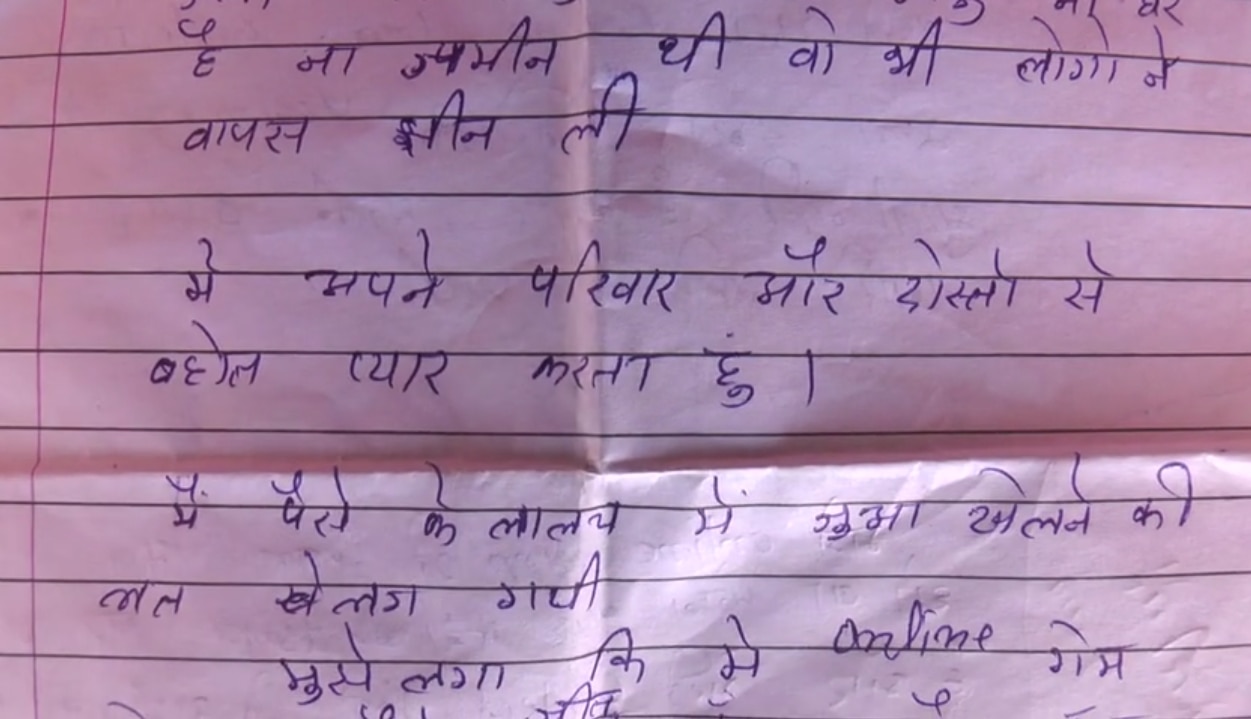 घर
है ना ज्यमीन थी वो भी लोगो ने
वापस छीन ली
मे अपने परिवार और दोस्तो से
बहोत प्यार करता हुं।
मैं पैसे के लालच में जुआ खेलने की
लत लग गयी
मुझे लगा कि मे online गेम